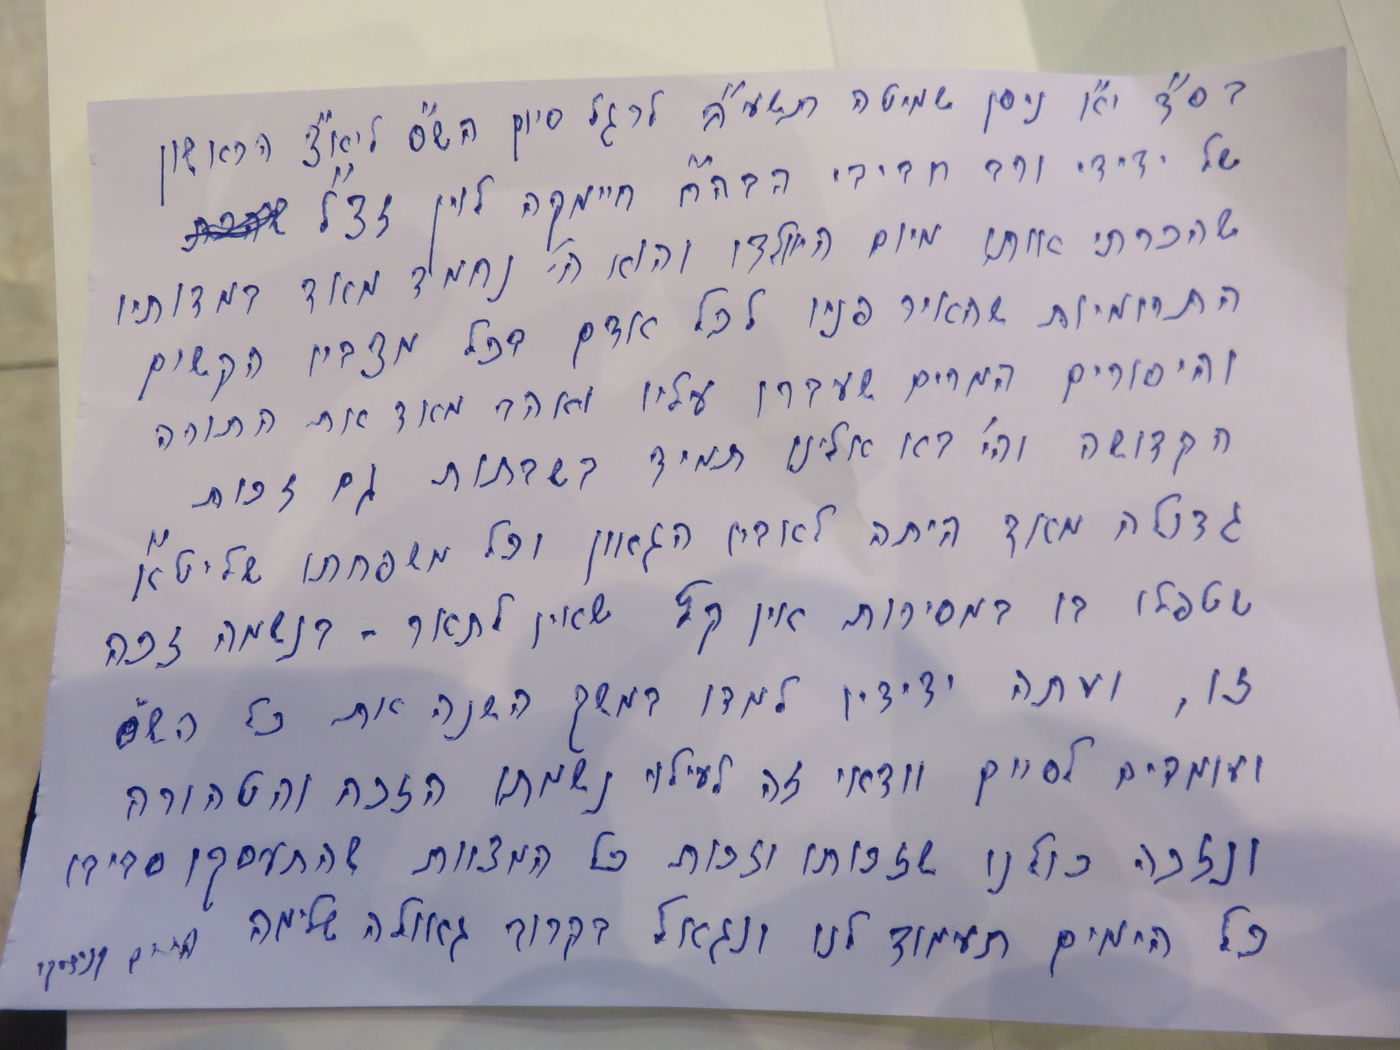 בס"ד י"א ניסן שמיטה תשע"ה לרגל סיום הש"ס ליא"צ הראשון
של ידידי ורב חביבי הבה"ח חיימקה לוין זצ"ל
שהכרתי אותו מיום היוולדו והוא הי' נחמד מאוד במדותיו
התרומיות שהאיר פניו לכל אדם בכל מצביו הקשים
והיסורים המרים שעברו עליו ואהב מאוד את התורה
הקדושה והי' בא אלינו תמיד בשבתות גם זכות
גדולה מאוד היתה לאביו הגאון וכל משפחתו שליט"א
שטפלו בו במסירות אין קץ שאין לתאר - בנשמה זכה
זו, ועתה ידידיו למדו במשך השנה את כל הש"ס
ועומדים לסיים וודאי זה לעילוי נשמתו הזכה והטהורה
ונזכה כולנו שזכותו וזכות כל המצוות שהתעסקו סביבו
כל הימים תעמוד לנו ונגאל בקרוב גאולה שלימה קניבסקי